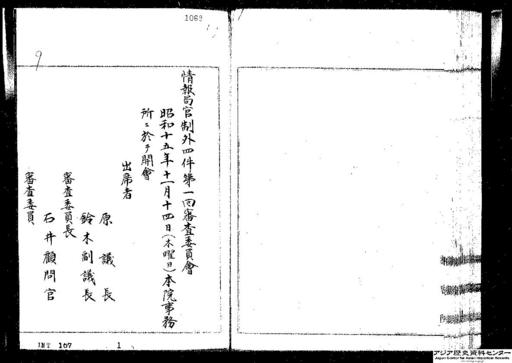 1063
情報局官制外四件第一回審査委員會
昭和十五年十一月十四日(木曜日)本院事務
所ニ於テ開會
出席者
原議長
鈴木副議長
審査委員長
石井顧問官
審査委員
JMT 167
1
アジア歴史資料センター
Japan Center for Asian Historical Records